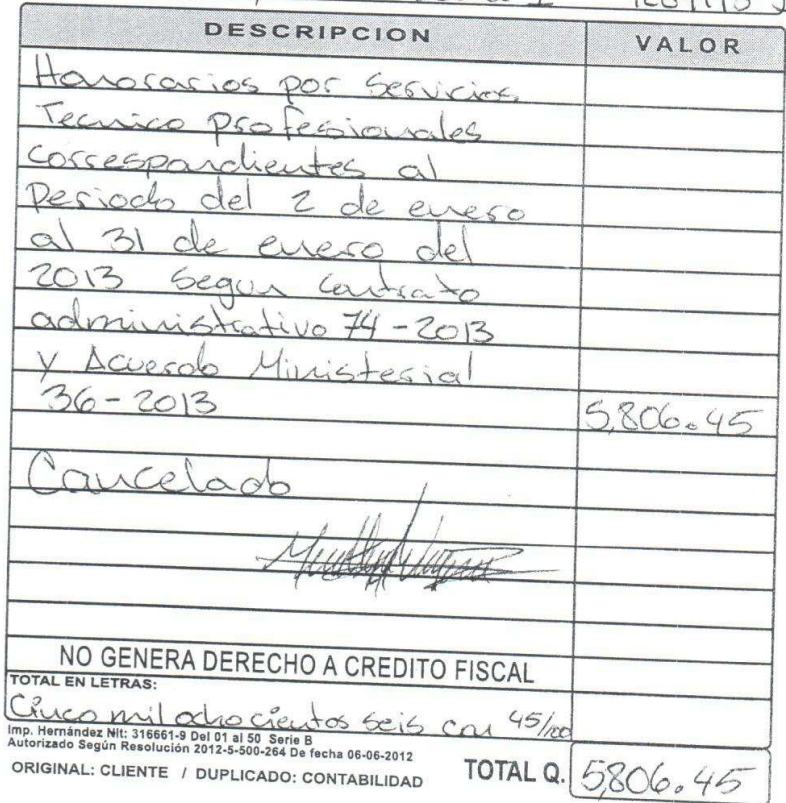 DESCRIPCION VALOR
Honorarios por Servicios
Tecnico Profesionales
correspondientes al
Periodo del 2 de enero
al 31 de enero del
2013 Segun Contrato
administrativo 74-2013
y Acuerdo Ministerial
36-2013 5,806.45
Cancelado
NO GENERA DERECHO A CREDITO FISCAL
TOTAL EN LETRAS:
Cinco mil ochocientos seis con 45/100
Imp. Hernández Nit: 316661-9 Del 01 al 50 Serie B
Autorizado Según Resolución 2012-5-500-264 De fecha 06-06-2012
ORIGINAL: CLIENTE / DUPLICADO: CONTABILIDAD TOTAL Q. 5,806.45